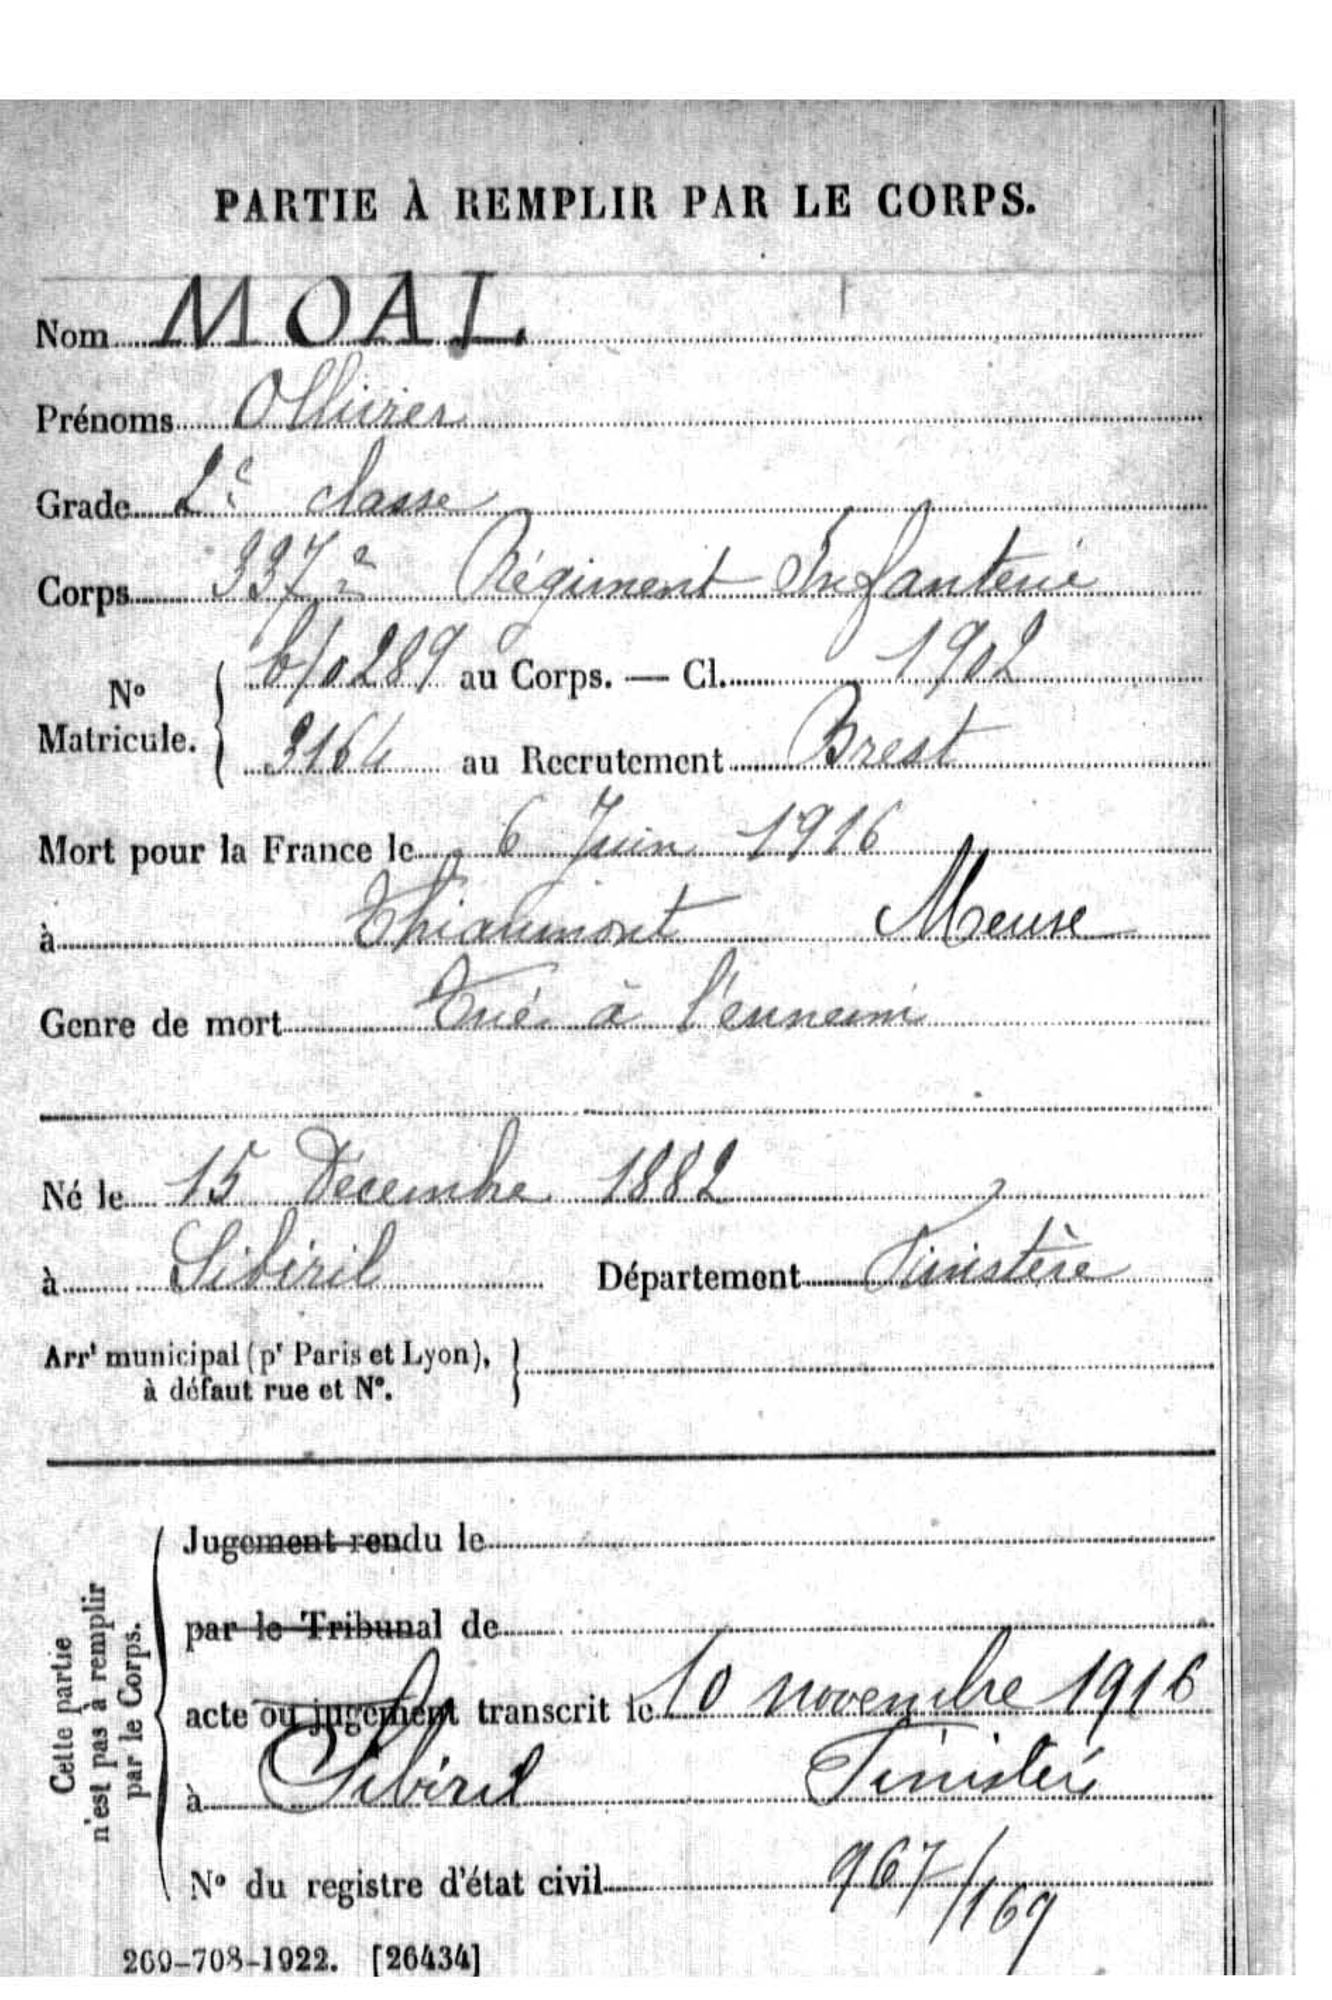 PARTIE À REMPLIR PAR LE CORPS.
Nom MOAL
Prénoms Ollivier
Grade 2e classe
Corps 337e Régiment Infanterie
No Matricule. { 6/0289 au Corps. — Cl. 1902
3164 au Recrutement Brest
Mort pour la France le 6 Juin 1916
à Thiaumont Meuse
Genre de mort Tué à l'ennemi
Né le 15 Décembre 1882
à Sibiril Département Finistère
Arrt municipal (pr Paris et Lyon),
à défaut rue et No.
Cette partie
n'est pas à remplir
par le Corps.
Jugement rendu le
par le Tribunal de
acte ou jugement transcrit le 10 novembre 1916
à Sibiril Finistère
No du registre d'état civil 967/169
269-708-1922. [26434]